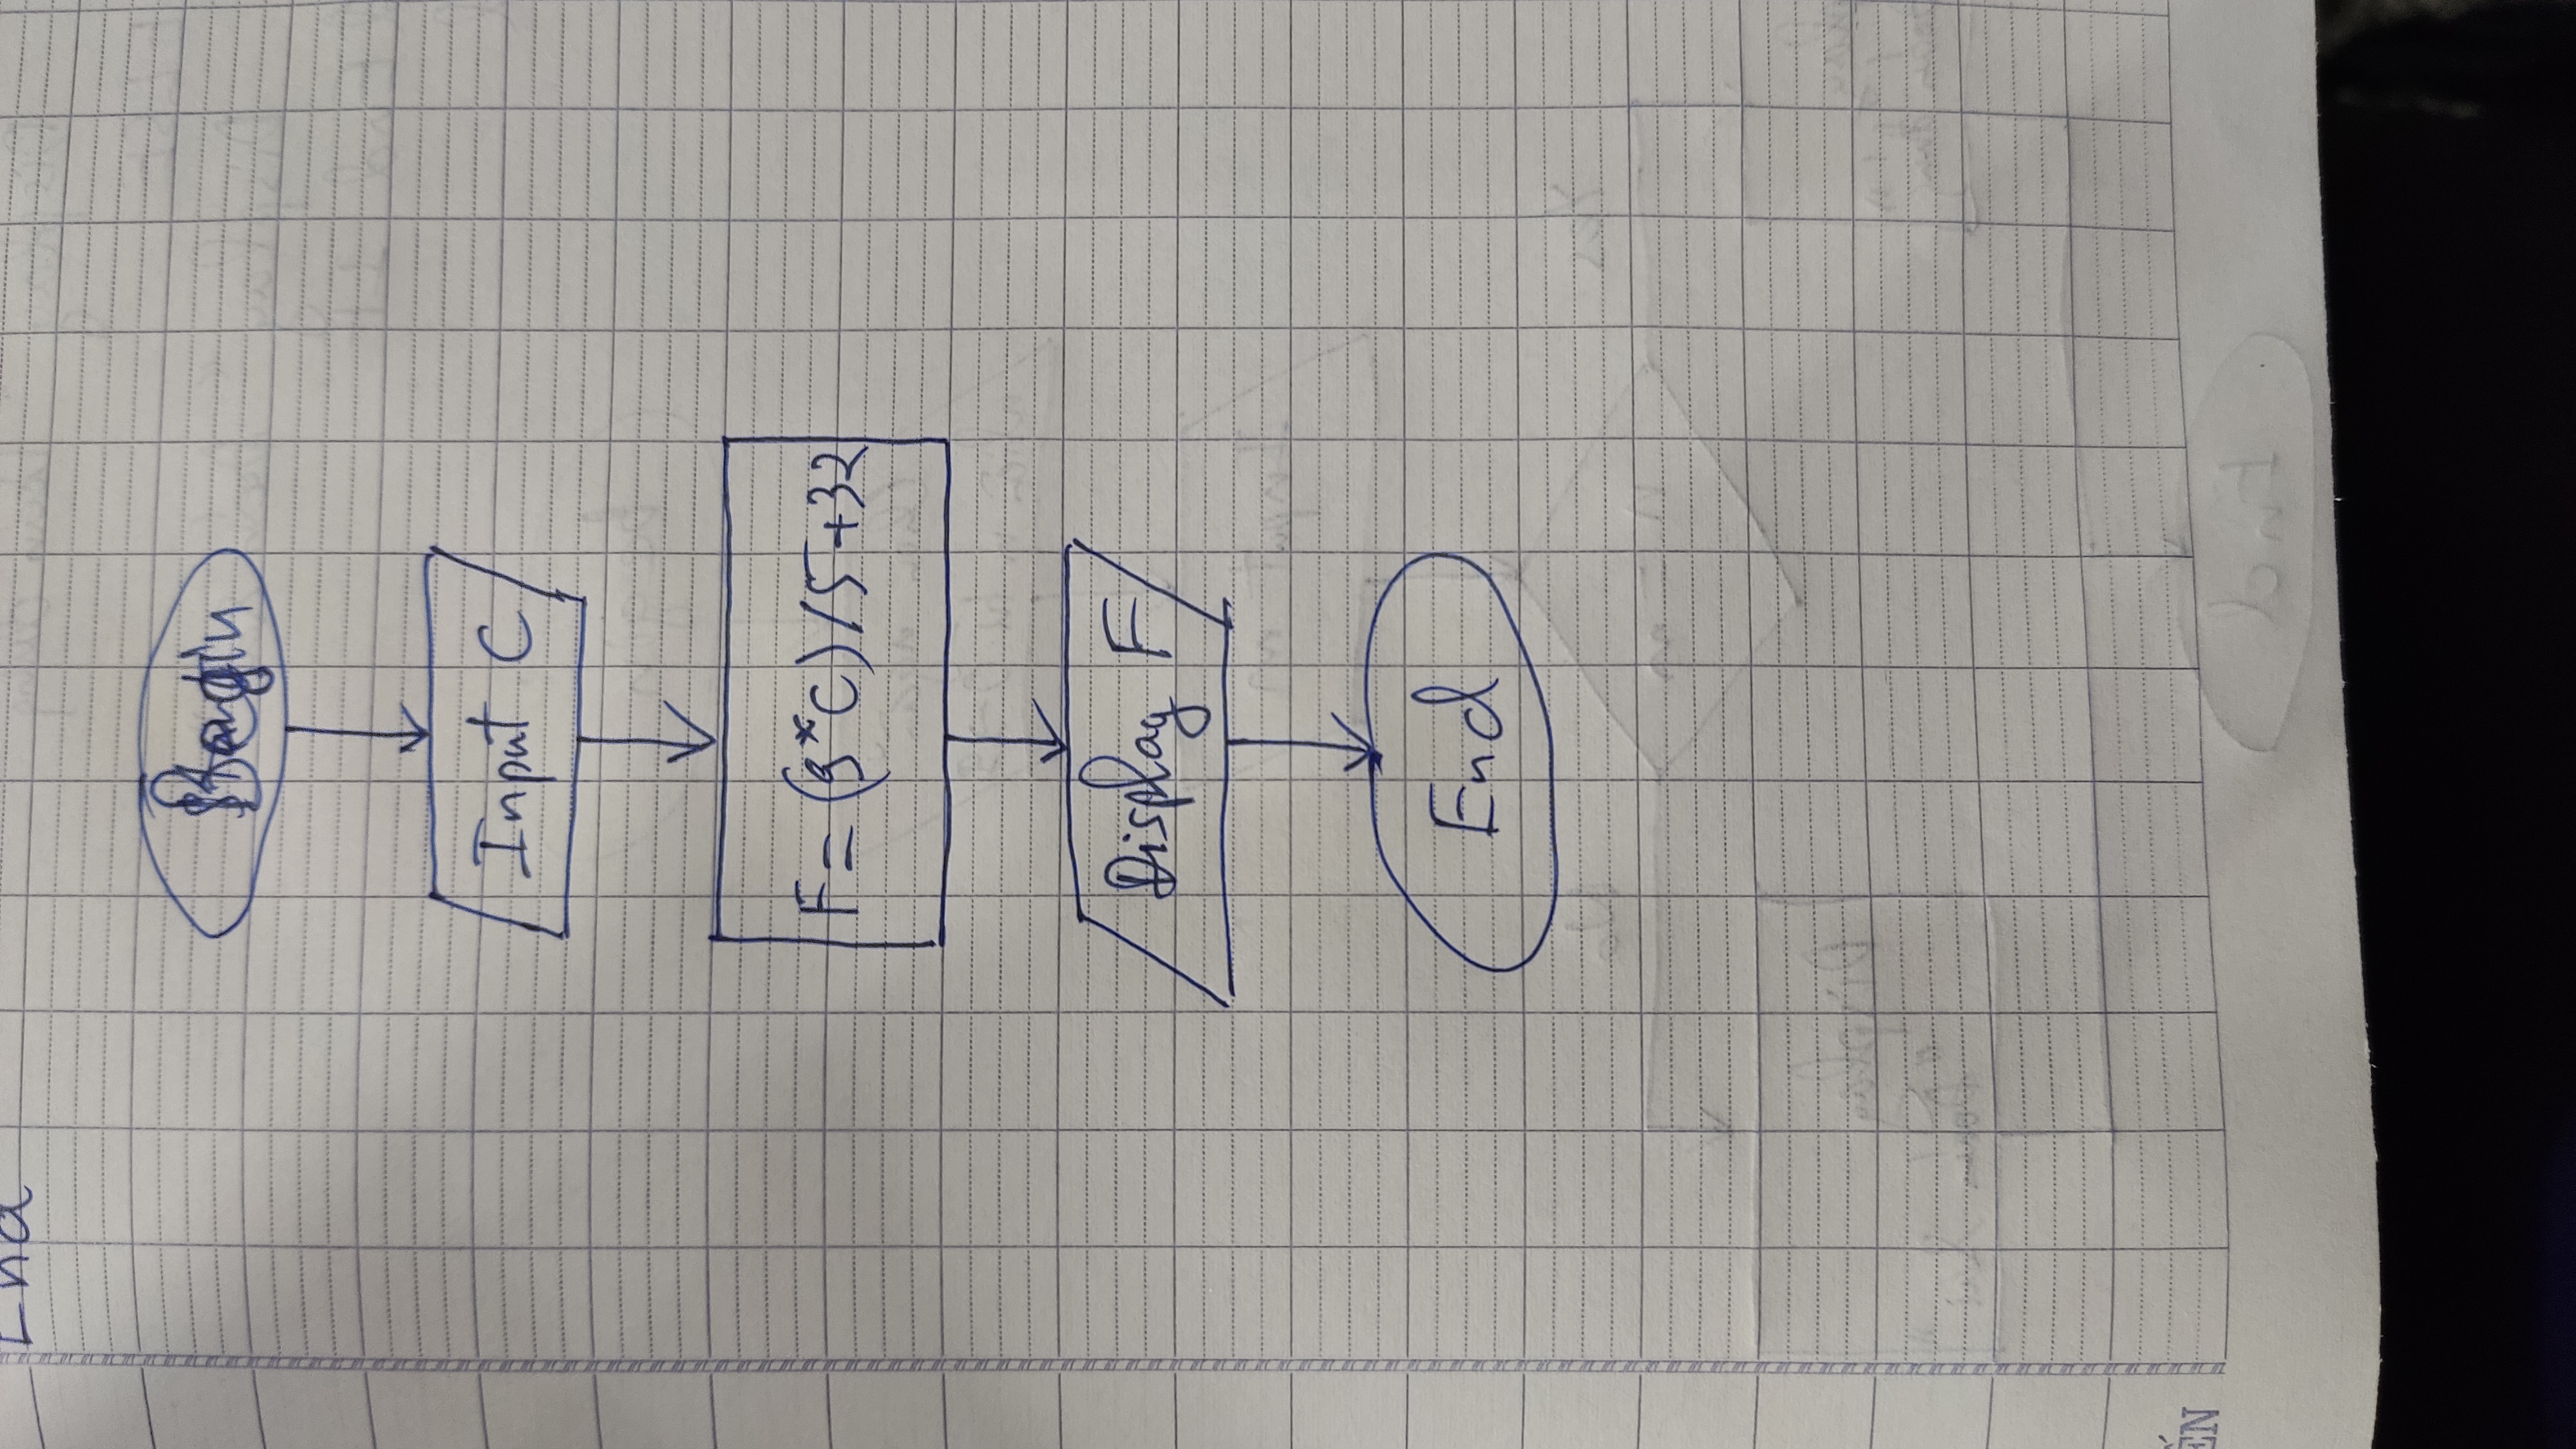 End
Begin
Input C
F = (9*C)/5+32
Display F
End
ẾN